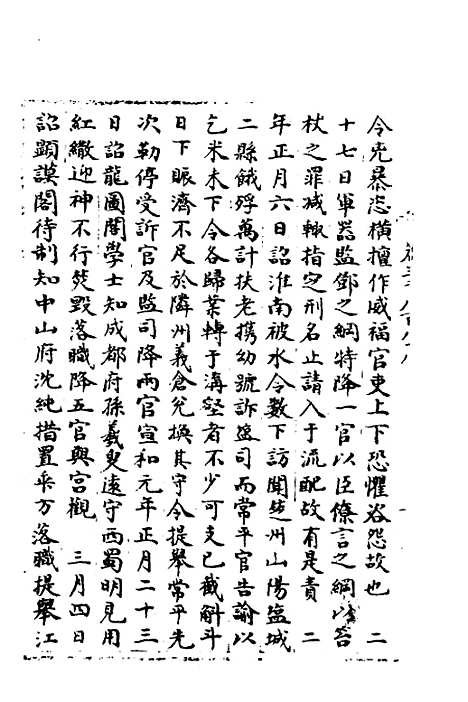 令兇暴恣橫擅作威福官吏上下恐懼浴怨故也　二
十七日軍器監鄧之綱特降一官以臣僚言之綱以笞
杖之罪減輙指定刑名止請入于流配故有是責　二
年正月六日詔淮南被水令數下訪聞楚州山陽塩城
二縣餓殍萬計扶老携幼號訴監司而常平官告諭以
乞米未下令各歸業轉于溝壑者不少可支已截斛斗
日下賑濟不足於隣州義倉兌換其守令提舉常平先
次勒停受訴官及監司降兩官宣和元年正月二十三
日詔龍圖閣學士知成都府孫羲叟遠守西蜀明見用
紅繖迎神不行焚毀落職降五官與宮觀　三月四日
詔顯謨閣待制知中山府沈純措置乖方落職提舉江